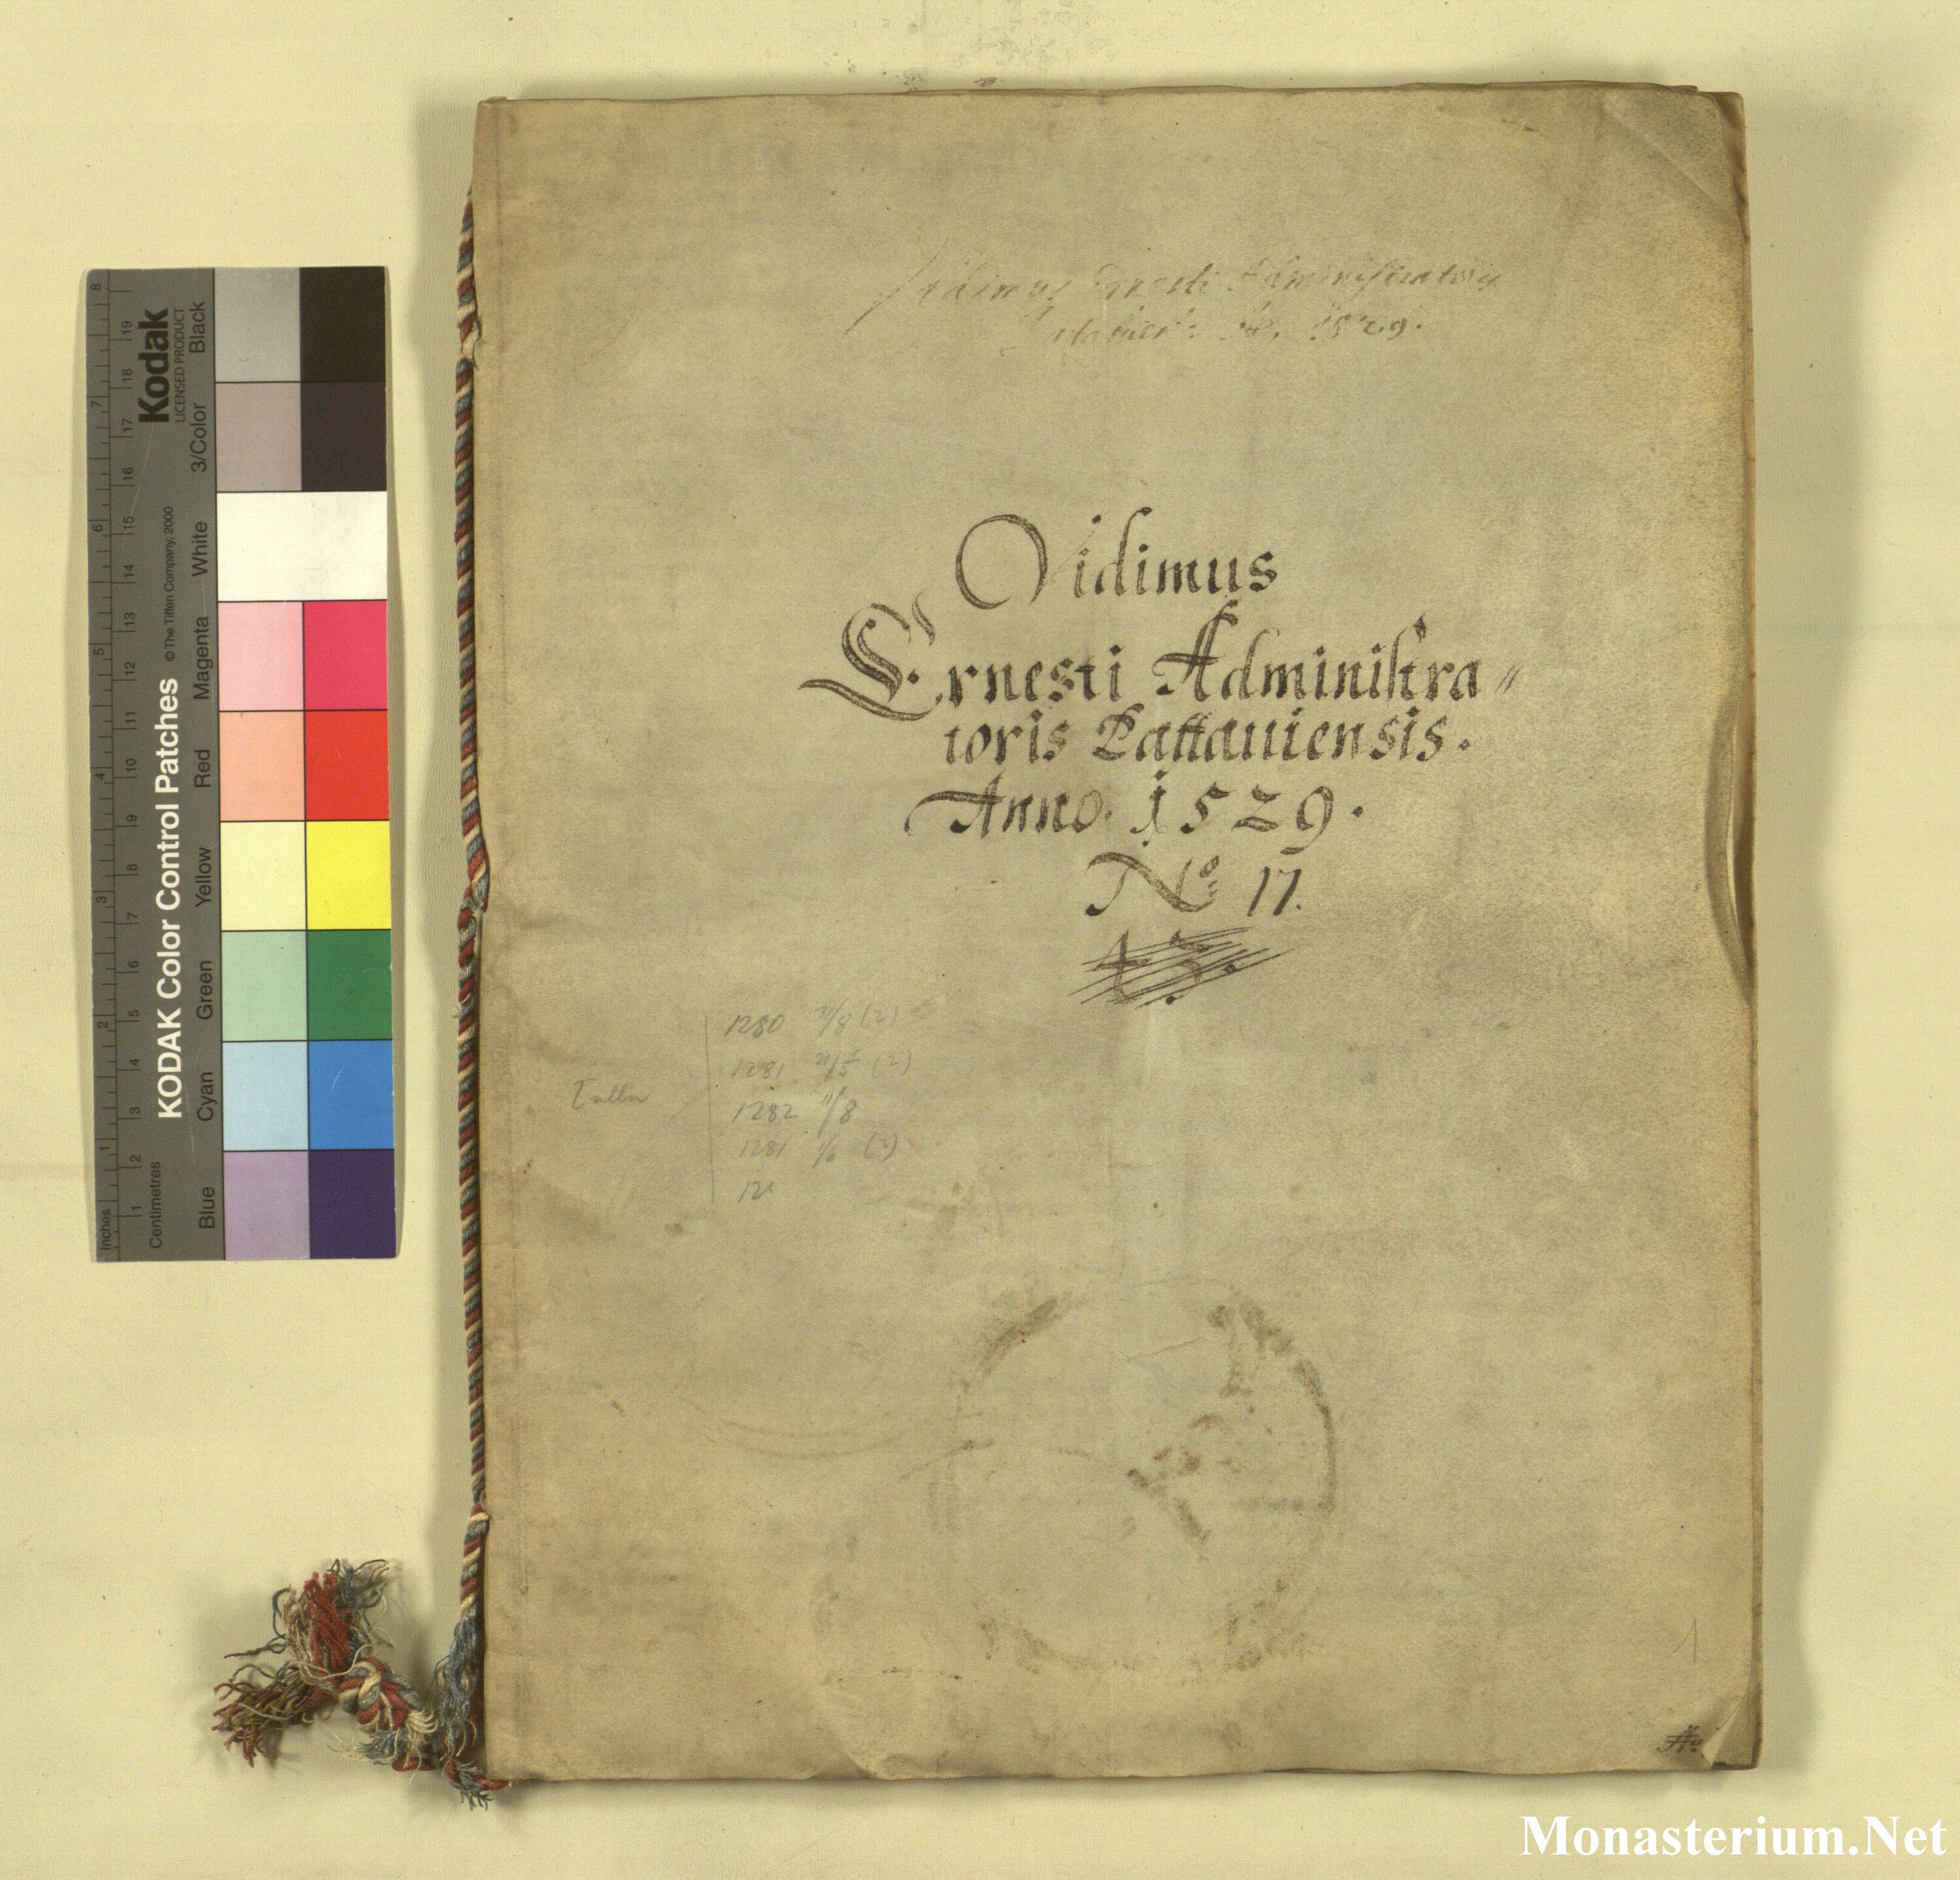 Vidimus Ernesti Administratoris
1529.
Vidimus
Ernesti Administra〃
toris Passauiensis.
Anno. 1529.
No 17.
1280 2/8 (2)
1281
Tulln
1282 11/8
1281
12
1
Kodak
LICENSED PRODUCT
KODAK Color Control Patches © The Tiffen Company, 2000
Blue Cyan Green Yellow Red Magenta White 3/Color Black
Inches 1 2 3 4 5 6 7 8
Centimetres 1 2 3 4 5 6 7 8 9 10 11 12 13 14 15 16 17 18 19
Monasterium.Net